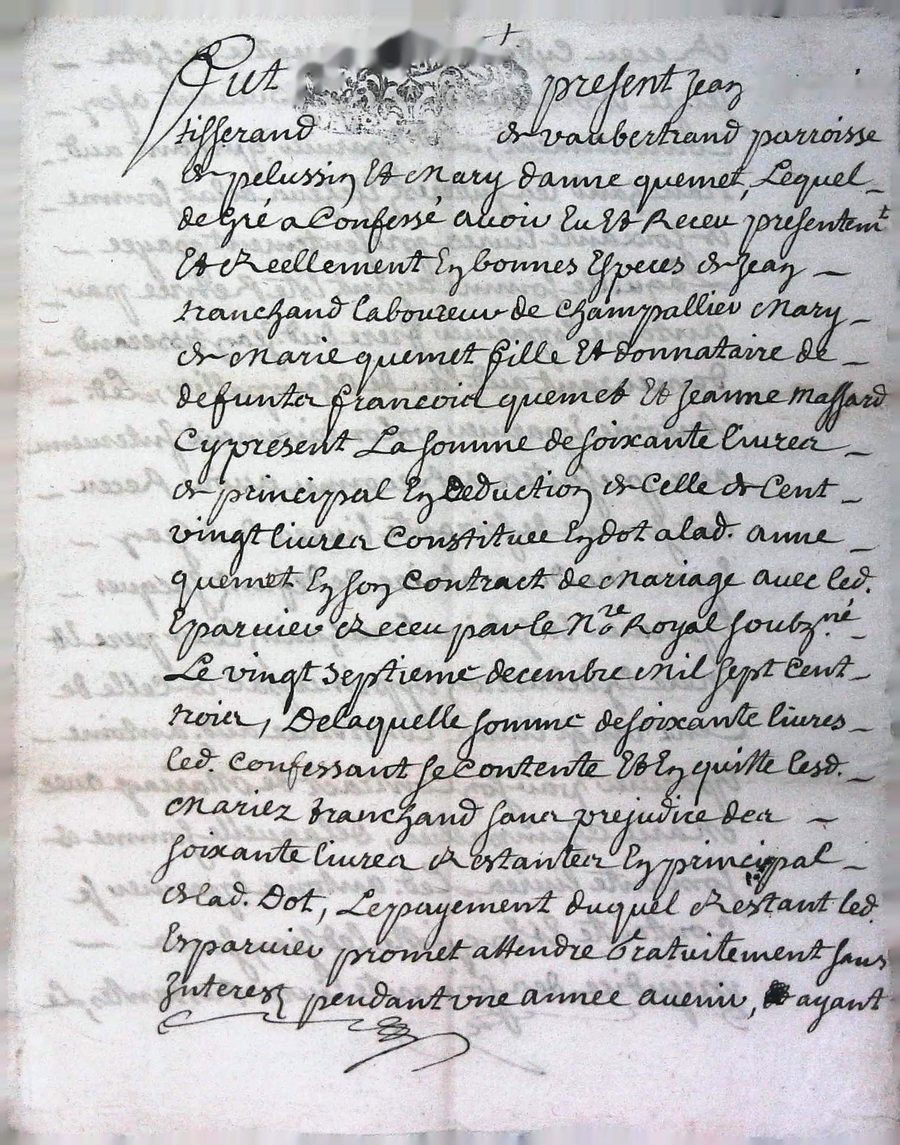 Fut present Jean
tisserand de vaubertrand parroisse
de pelussin Et Mary danne quemet, Lequel
de Gré a Confessé avoir Eu Et Receu presentemt
Et Reellement En bonnes Especes de Jean
tranchand laboureur de Champallier Mary
de Marie quemet fille Et donnataire de
defuntes francois quemet Et Jeanne Massard
Cy present La somme de soixante livres
de principal En deduction de Celle de Cent
vingt livres Constituee En dot a lad. anne
quemet En son Contract de Mariage avec led.
Eparvier Receu par le Nre Royal soubzné
Le vingt septieme decembre Mil sept Cent
trois, De laquelle somme de soixante livres
led. Confessant se Contente Et En quitte lesd.
Mariez tranchand sans prejudice des
soixante livres Restantes En principal
de lad. Dot, Le payement duquel Restant led.
Esparvier promet attendre Gratuitement sans
Interest pendant une annee avenir, ayant